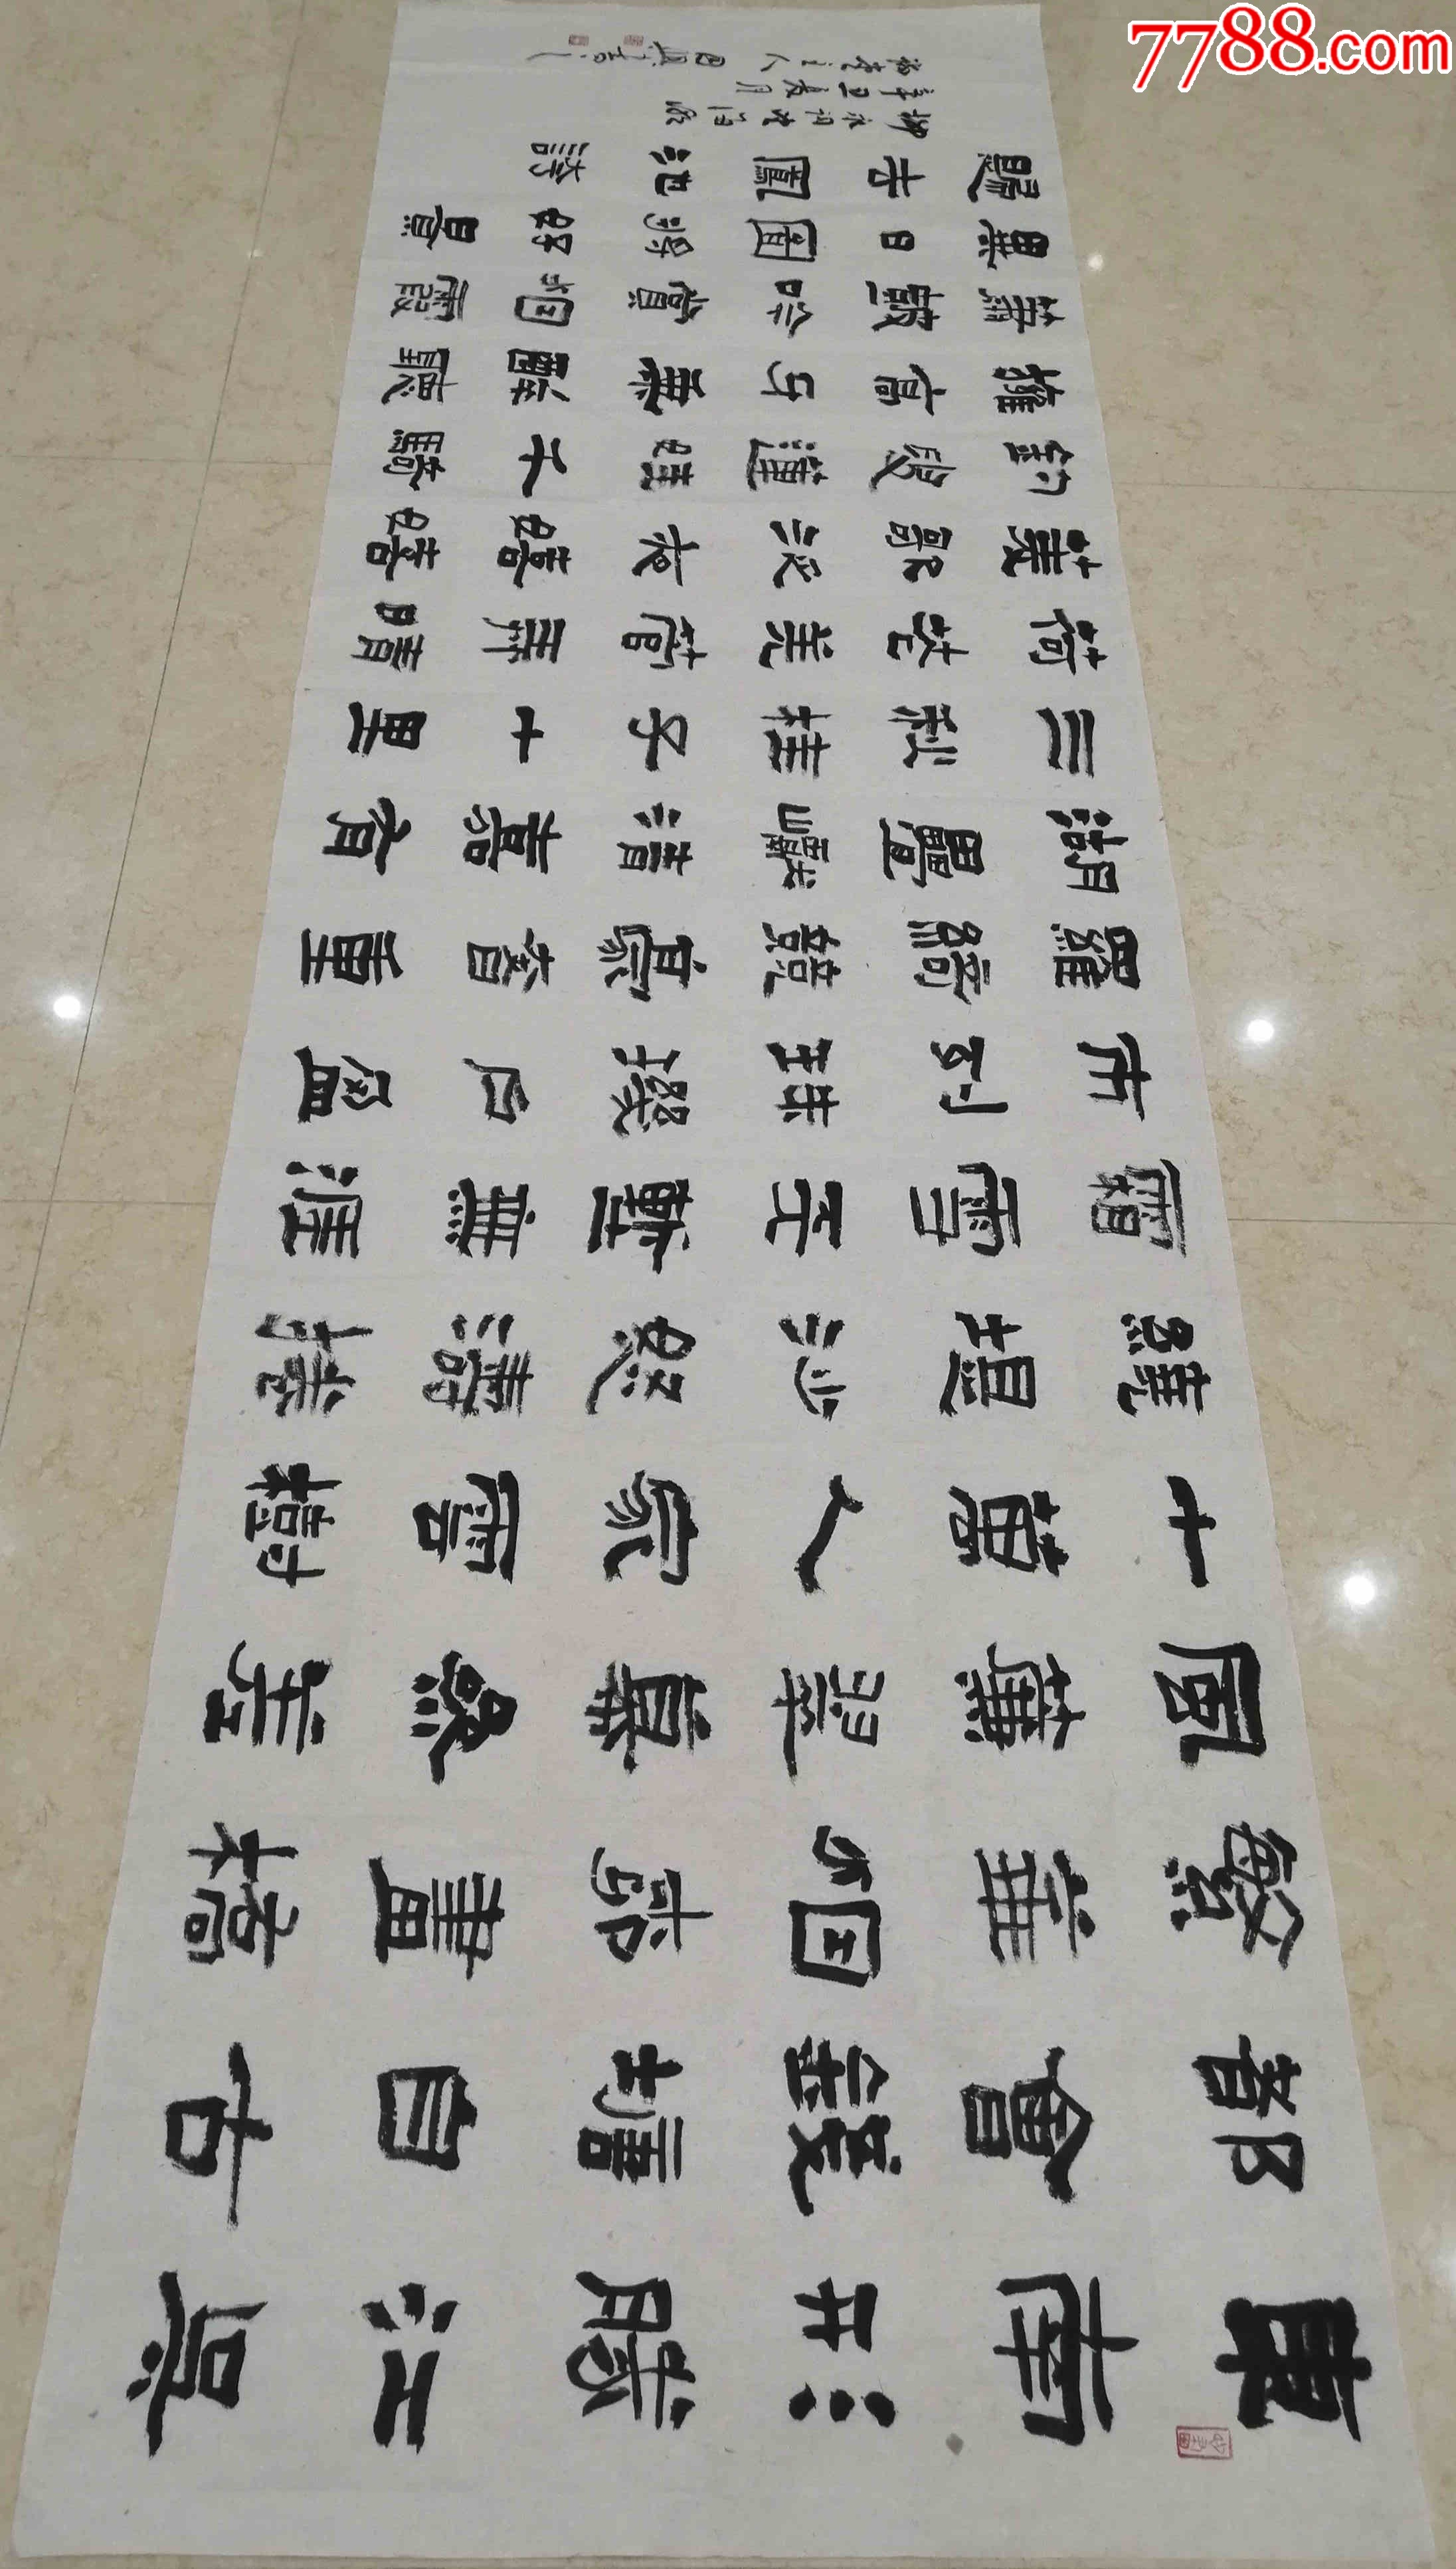 東南形勝江吴
都會錢塘自古
繁華烟柳畫橋
風簾翠幕參差
十萬人家雲樹
繞堤沙怒濤捲
霜雪天塹無涯
市列珠璣户盈
羅綺競豪奢重
湖疊巘清嘉有
三秋桂子十里
荷花羌管弄晴
菱歌泛夜嬉嬉
釣叟蓮娃千騎
擁高牙乘醉聽
簫鼓吟賞烟霞
異日圖將好景
歸去鳳池誇
柳永詞望海潮
辛巳夏月
7788.com